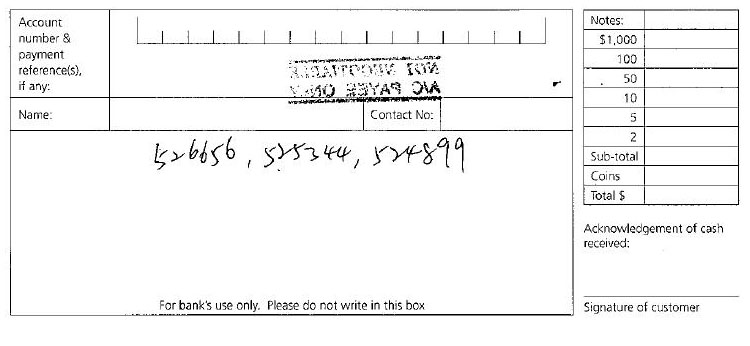 Account
number &
payment
reference(s),
if any:
NOT NEGOTIABLE
A/C PAYEE ONLY
Name:
Contact No:
526656, 525344, 524899
For bank's use only. Please do not write in this box
Notes:
$1,000
100
50
10
5
2
Sub-total
Coins
Total $
Acknowledgement of cash
received:
Signature of customer